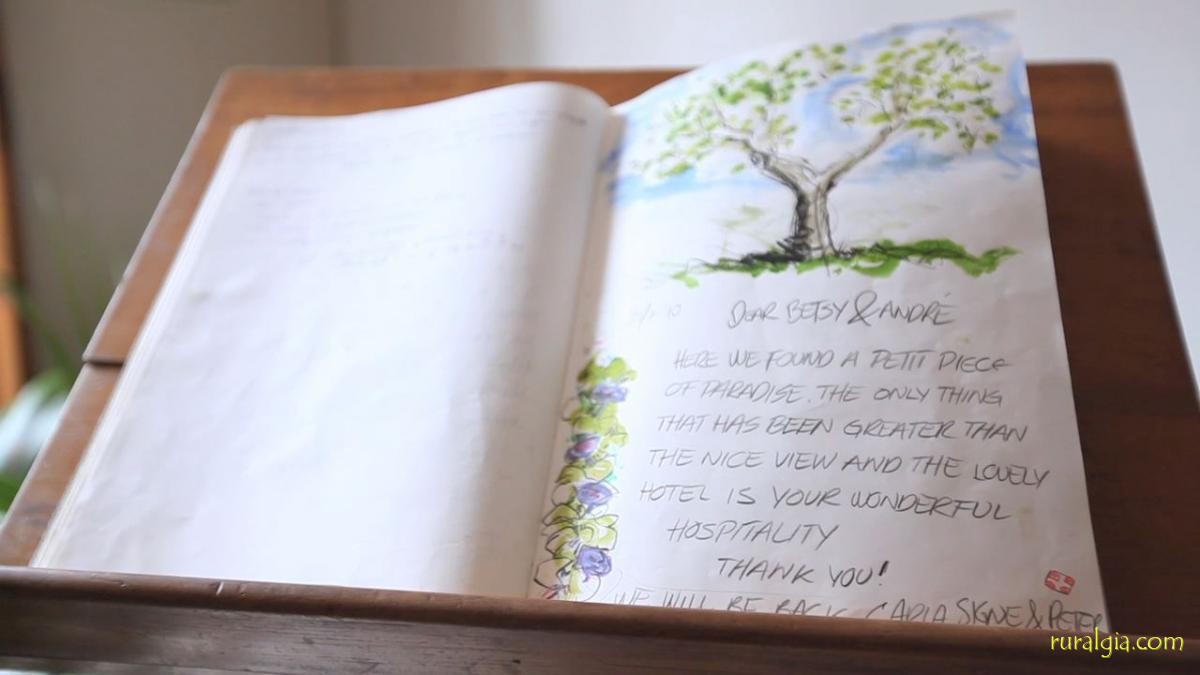 DEAR BETSY & ANDRÉ
HERE WE FOUND A PETIT PIECE
OF PARADISE. THE ONLY THING
THAT HAS BEEN GREATER THAN
THE NICE VIEW AND THE LOVELY
HOTEL IS YOUR WONDERFUL
HOSPITALITY
THANK YOU!
WE WILL BE BACK CARLA SIGNE & PETER
ruralgia.com